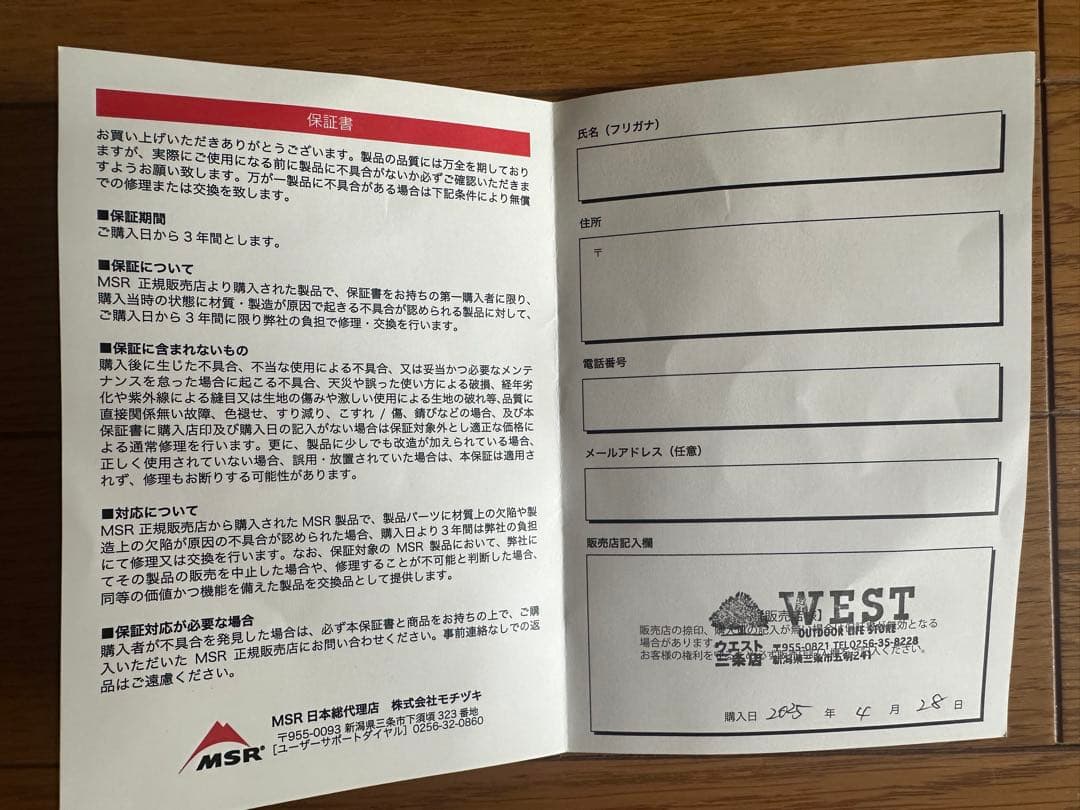 保証書
お買い上げいただきありがとうございます。製品の品質には万全を期しており
ますが、実際にご使用になる前に製品に不具合がないか必ずご確認いただきま
すようお願い致します。万が一製品に不具合がある場合は下記条件により無償
での修理または交換を致します。
■保証期間
ご購入日から3年間とします。
■保証について
MSR 正規販売店より購入された製品で、保証書をお持ちの第一購入者に限り、
購入当時の状態に材質・製造が原因で起きる不具合が認められる製品に対して、
ご購入日から3年間に限り弊社の負担で修理・交換を行います。
■保証に含まれないもの
購入後に生じた不具合、不当な使用による不具合、又は妥当かつ必要なメンテ
ナンスを怠った場合に起こる不具合、天災や誤った使い方による破損、経年劣
化や紫外線による縫目又は生地の傷みや激しい使用による生地の破れ等、品質に
直接関係無い故障、色褪せ、すり減り、こすれ / 傷、錆びなどの場合、及び本
保証書に購入店印及び購入日の記入がない場合は保証対象外とし適正な価格に
よる通常修理を行います。更に、製品に少しでも改造が加えられている場合、
正しく使用されていない場合、誤用・放置されていた場合は、本保証は適用さ
れず、修理もお断りする可能性があります。
■対応について
MSR 正規販売店から購入された MSR 製品で、製品パーツに材質上の欠陥や製
造上の欠陥が原因の不具合が認められた場合、購入日より3年間は弊社の負担
にて修理又は交換を行います。なお、保証対象の MSR 製品において、弊社に
てその製品の販売を中止した場合や、修理することが不可能と判断した場合、
同等の価値かつ機能を備えた製品を交換品として提供します。
■保証対応が必要な場合
購入者が不具合を発見した場合は、必ず本保証書と商品をお持ちの上で、ご購
入いただいた MSR 正規販売店にお問い合わせください。事前連絡なしでの返
品はご遠慮ください。
MSR
MSR 日本総代理店 株式会社モチヅキ
〒955-0093 新潟県三条市下須頃 323 番地
[ユーザーサポートダイヤル] 0256-32-0860
氏名（フリガナ）
住所
〒
電話番号
メールアドレス（任意）
販売店記入欄
WEST
OUTDOOR LIFE STORE
販売店の捺印、購入日の記入が無い場合は保証が無効となる
場合があります。
ウエスト
三条店
〒955-0821 TEL0256-35-8228
新潟県三条市五明241
お客様の権利を
購入日 2025 年 4 月 28 日